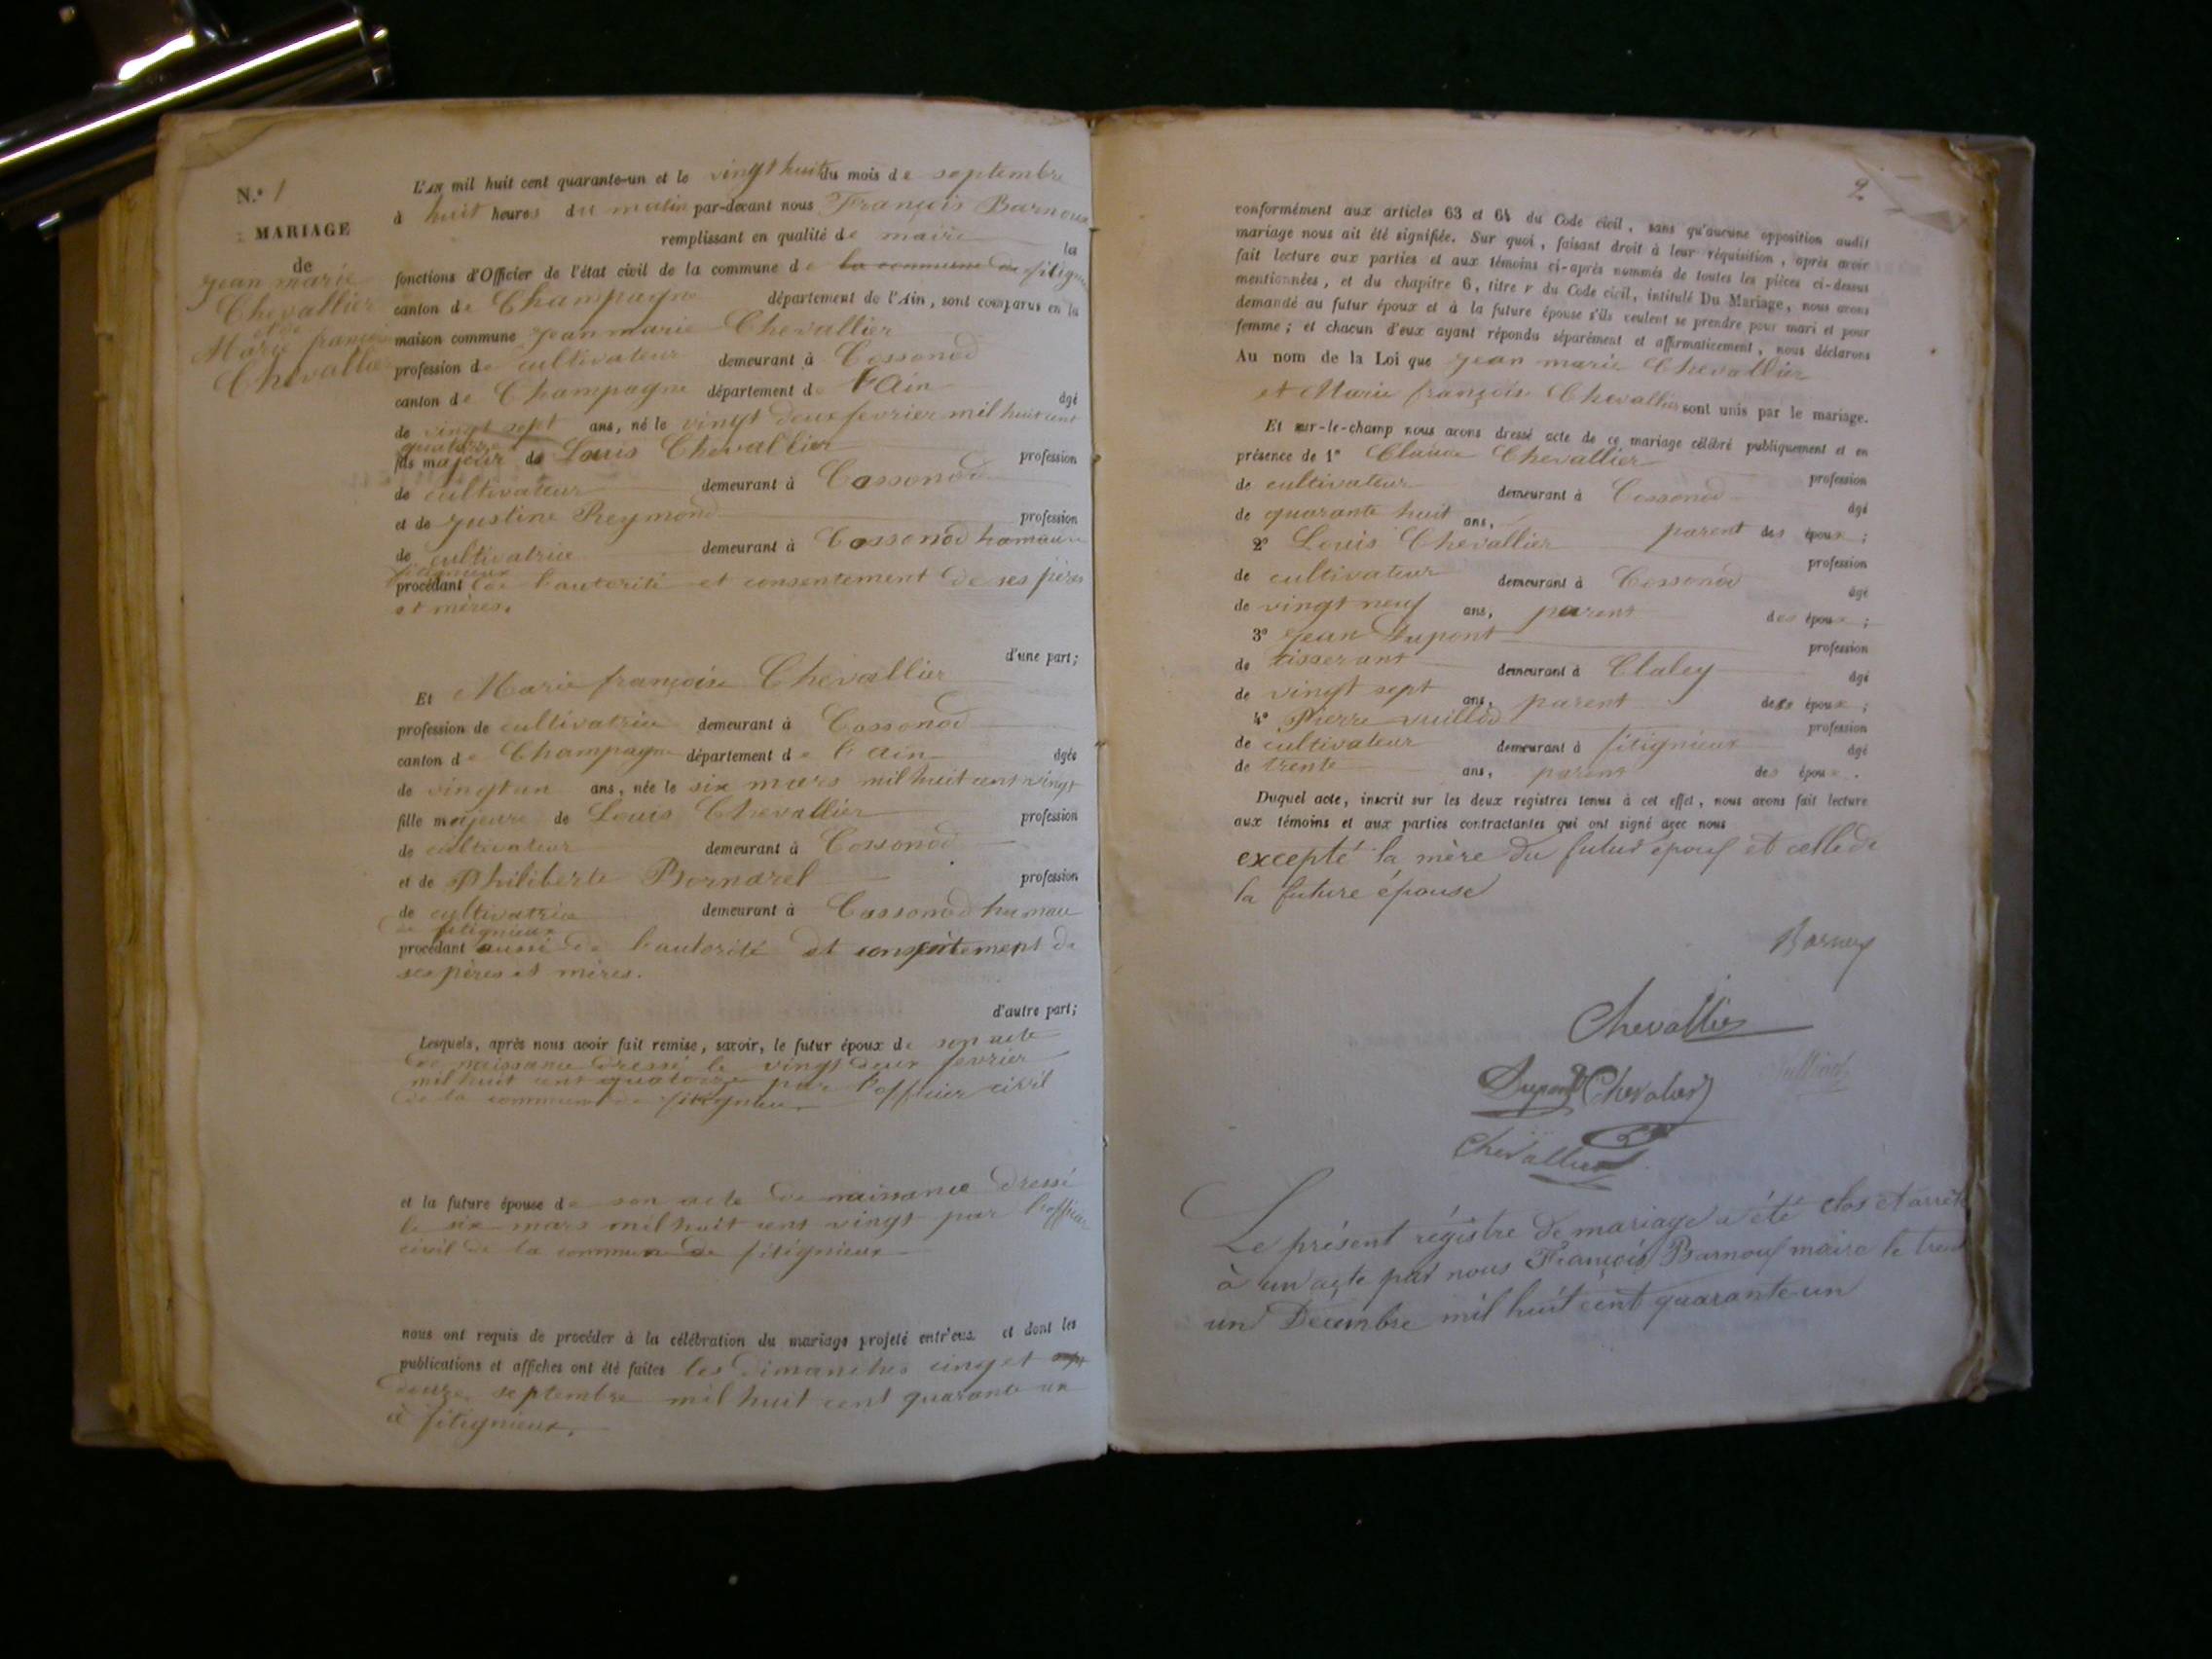 N.° 1
MARIAGE
de
jean marie
Chevallier
et de
Marie françoise
Chevallier
L'AN mil huit cent quarante-un et le vingt huit du mois de septembre
à huit heures du matin par-devant nous François Barnoux
remplissant en qualité de maire les
fonctions d'Officier de l'état civil de la commune de la commune de fitignieux
canton de Champagne département de l'Ain, sont comparus en la
maison commune jean marie Chevallier
profession de cultivateur demeurant à Cossonod
canton de Champagne département de l'Ain âgé
de vingt sept ans, né le vingt deux fevrier mil huit cent
quatorze
fils majeur de Louis Chevallier profession
de cultivateur demeurant à Cossonod
et de justine Reymond profession
de cultivatrice demeurant à Cossonod hameau de
fitignieux
procédant de l'autorité et consentement de ses pères
et mères.
d'une part;
Et Marie françoise Chevallier
profession de cultivatrice demeurant à Cossonod
canton de Champagne département de l'ain âgée
de vingt un ans, née le six mars mil huit cent vingt
fille majeure de Louis Chevallier profession
de cultivateur demeurant à Cossonod
et de Philiberte Bornarel profession
de cultivatrice demeurant à Cossonod hameau
de fitignieux
procédant aussi de l'autorité et consentement de
ses pères et mères.
d'autre part;
Lesquels, après nous avoir fait remise, savoir, le futur époux de son acte
de naissance dressé le vingt deux fevrier
mil huit cent quatorze par l'officier civil
de la commune de fitignieux
et la future épouse de son acte de naissance dressé
le six mars mil huit cent vingt par l'officier
civil de la commune de fitignieux
nous ont requis de procéder à la célébration du mariage projeté entr'eux et dont les
publications et affiches ont été faites les dimanches cinq et sept
douze septembre mil huit cent quarante un
à fitignieux.
2
conformément aux articles 63 et 64 du Code civil, sans qu'aucune opposition audit
mariage nous ait été signifiée. Sur quoi, faisant droit à leur réquisition, après avoir
fait lecture aux parties et aux témoins ci-après nommés de toutes les pièces ci-dessus
mentionnées, et du chapitre 6, titre v du Code civil, intitulé Du Mariage, nous avons
demandé au futur époux et à la future épouse s'ils veulent se prendre pour mari et pour
femme; et chacun d'eux ayant répondu séparément et affirmativement, nous déclarons
Au nom de la Loi que jean marie Chevallier
et Marie françoise Chevallier sont unis par le mariage.
Et sur-le-champ nous avons dressé acte de ce mariage célébré publiquement et en
présence de 1° Claude Chevallier profession
de cultivateur demeurant à Cossonod âgé
de quarante huit ans, parent des époux;
2° Louis Chevallier profession
de cultivateur demeurant à Cossonod âgé
de vingt neuf ans, parent des époux;
3° jean Dupont profession
de tisserant demeurant à Claley âgé
de vingt sept ans, parent des époux;
4° Pierre vuillod profession
de cultivateur demeurant à fitignieux âgé
de trente ans, parent des époux.
Duquel acte, inscrit sur les deux registres tenus à cet effet, nous avons fait lecture
aux témoins et aux parties contractantes qui ont signé avec nous
excepté la mère du futur époux et celle de
la future épouse
Barnoux
Chevallier
Dupont Chevalier
Chevallier
Le présent régistre de mariage a été clos et arrêté
à un acte par nous François Barnoux maire le trente
un Décembre mil huit cent quarante un